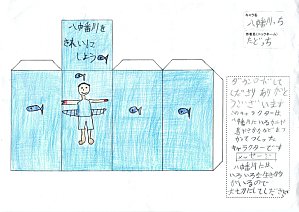 八幡川を
きれいに
しよう
八幡川っち
たどっち
ダウンロードして
ありがと
うございます
このキャラクターは
八幡川にいる
つくった
キャラクターです
メッセージ
八幡川には、
いろいろな生き物
がいるので
大切にしてください